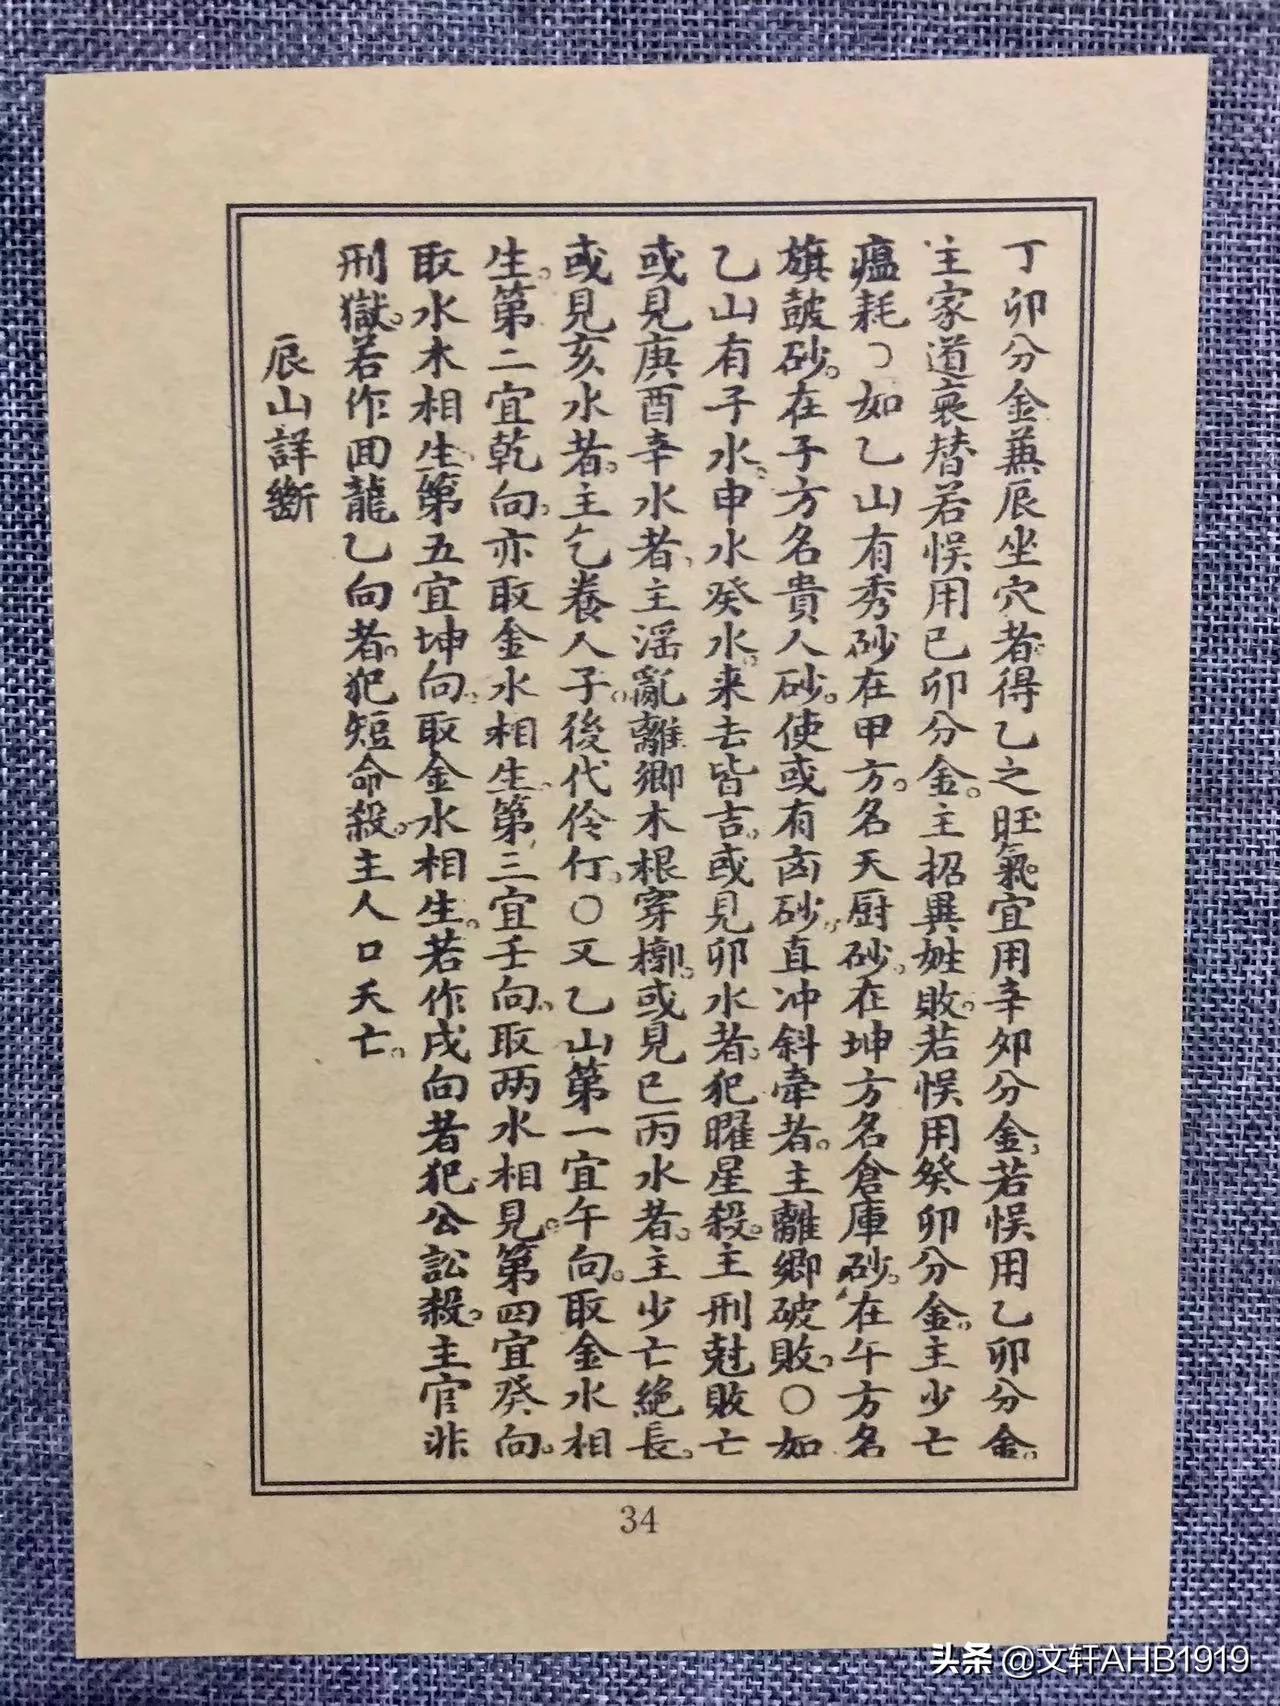 丁卯分金兼辰坐穴者。得乙之旺氣。宜用辛卯分金。若悮用乙卯分金。
主家道衰替若悮用已卯分金。主招異姓敗。若悮用癸卯分金。主少亡
瘟耗○如乙山有秀砂在甲方。名天厨砂。在坤方名倉庫砂。在午方名
旗皷砂。在子方名貴人砂。使或有凶砂。直冲斜牽者。主離鄉破敗。○如
乙山有子水。申水癸水。来去皆吉。或見卯水者。犯曜星殺。主刑尅敗亡
或見庚酉辛水者。主淫亂離鄉木根穿槨。或見巳丙水者。主少亡絶長。
或見亥水者。主乞養人子。後代伶仃。○又乙山第一宜午向。取金水相
生。第二宜乾向。亦取金水相生。第三宜壬向。取两水相見。第四宜癸向。
取水木相生。第五宜坤向。取金水相生。若作戌向者犯公訟殺。主官非
刑獄。若作囬龍乙向者。犯短命殺。主人口夭亡。
辰山詳斷
34
头条 @文轩AHB1919